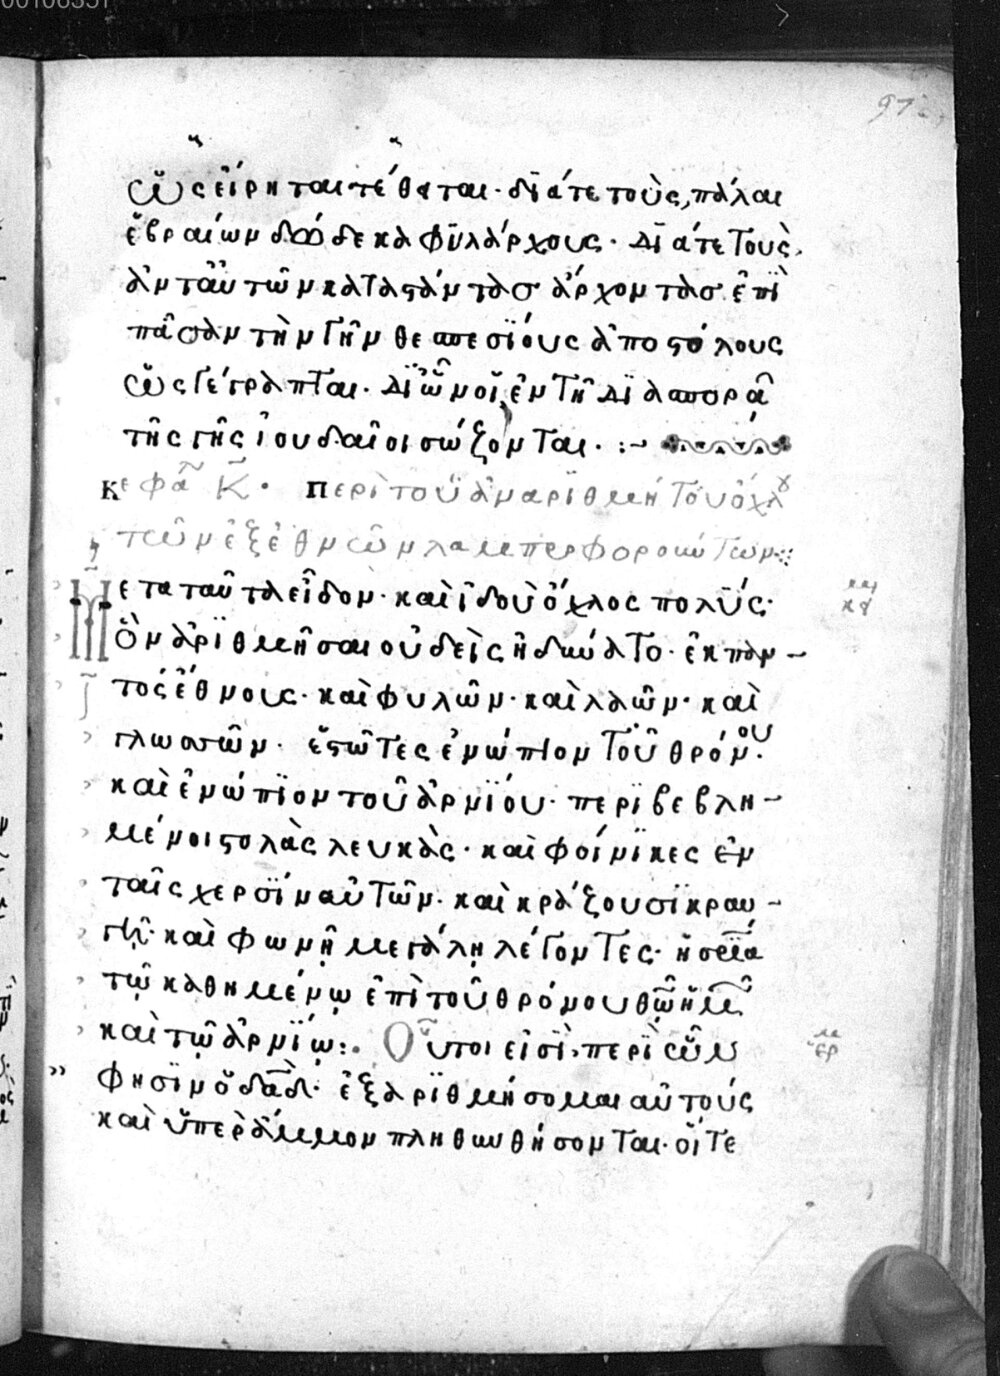 97
ὡς εἴρηται τέθαται· διά τε τοὺς πάλαι
ἑβραίων δώδεκα φϋλάρχους· διά τε τοὺς
ἀντ' αὐτῶν καταστάντας ἄρχοντας ἐπὶ
πᾶσαν τὴν γῆν θεσπεσΐους ἀποστόλους
ὡς γέγραπται· δϊ ὧν οἱ ἐν τῆ διασπορᾶ
τῆς γῆς ἰουδαῖοι σώζονται· :~
κεφα κ· περὶ τοῦ ἀναρϊθμήτου ὄχλου
τῶν ἐξ ἐθνῶν λαμπροφορούντων :
Μετα ταῦτα εἶδον· καὶ ἰδοὺ ὄχλος πολῢς·
ὃν ἀρϊθμῆσαι οὐδεὶς ἠδύνατο· ἐκ παν-
τὸς ἔθνους· καὶ φυλῶν· καὶ λαῶν· καὶ
γλωσσῶν· ἑστῶτες ἐνώπιον τοῦ θρόνου·
καὶ ἐνώπϊον τοῦ ἀρνΐου· περϊβεβλη-
μένοι στολὰς λευκὰς· καὶ φοίνϊκες ἐν
ταῖς χερσΐν αὐτῶν· καὶ κράζουσϊ κραυ-
γῇ· καὶ φωνῇ μεγάλῃ λέγοντες· ἡ σρΐα
τῷ καθημένῳ ἐπὶ τοῦ θρόνου θῶ ἡμῶ
καὶ τῷ ἀρνΐῳ:· Οὗτοι εἰσῒ, περῒ ὧν
φησϊν ὁ δαδ· ἐξαρϊθμήσομαι αὐτούς
καὶ ὕπὲρ ἄμμον πληθυνθήσονται· οἵτε